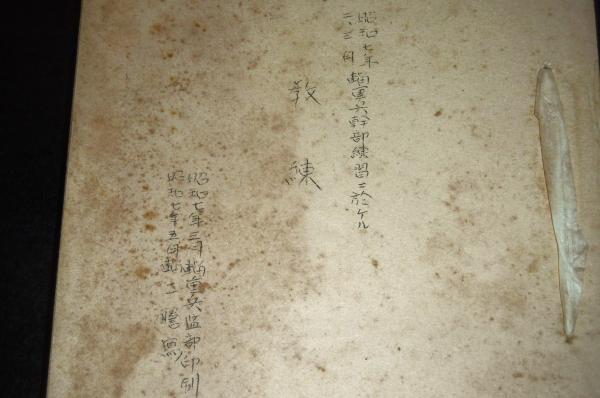 昭和七年
二、三月輜重兵幹部練習ニ於ケル
教練
昭和七年三月輜重兵監部印刷
昭和七年五月輜二謄寫